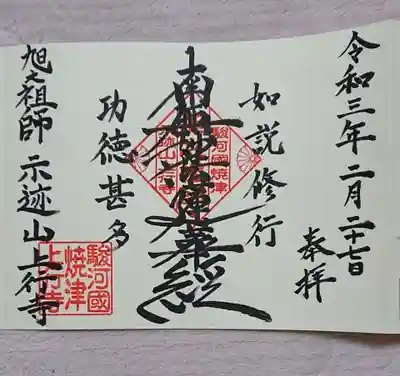 令和三年二月二十七日
奉拝
如説修行
南無妙法蓮華経
功徳甚多
旭之祖師 示迹山上行寺
駿河國
焼津
上行寺
駿河國焼津
示迹山上行寺